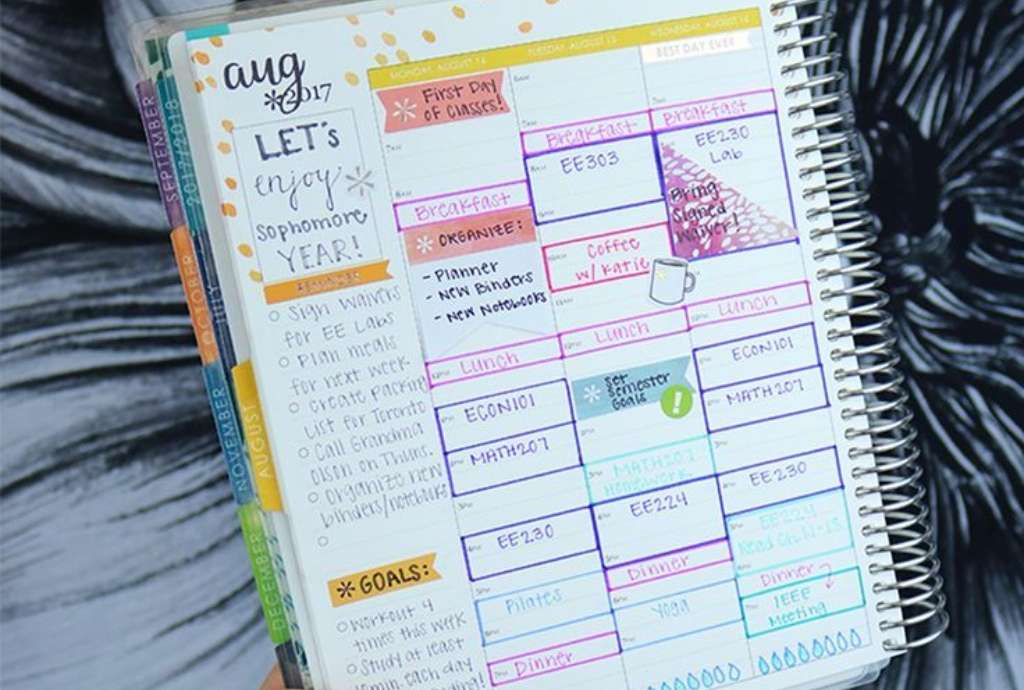 SEPTEMBER
2017/2018
OCTOBER
JULY
NOVEMBER
AUGUST
DECEMBER
aug
*2017
LET's
enjoy
sophomore
YEAR!
○ Sign Waivers
for EE Labs
○ Plan meals
for next week
○ Create Packing
List for Toronto
○ Call Grandma
Olson on Thurs.
○ Organize new
binders/notebooks
○
* GOALS:
○ Workout 4
times this week
○ Study at least
min. each day
MONDAY, AUGUST 14
First Day
of Classes!
Breakfast
* ORGANIZE:
- Planner
- New Binders
- New Notebooks
Lunch
ECON101
MATH207
EE230
Pilates
Dinner
TUESDAY, AUGUST 15
Breakfast
EE303
Coffee
w/ Katie
Lunch
Set
Semester
Goals
!
MATH207
Homework
EE224
Dinner
Yoga
WEDNESDAY, AUGUST 16
BEST DAY EVER
Breakfast
EE230
Lab
Bring
Signed
Waiver!
Lunch
ECON101
MATH207
EE230
EE224
Read Ch.
Dinner
IEEE
Meeting